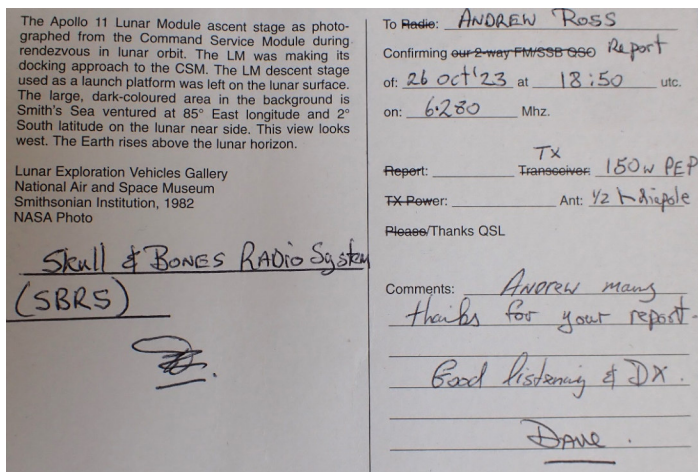 The Apollo 11 Lunar Module ascent stage as photo-
graphed from the Command Service Module during
rendezvous in lunar orbit. The LM was making its
docking approach to the CSM. The LM descent stage
used as a launch platform was left on the lunar surface.
The large, dark-coloured area in the background is
Smith's Sea ventured at 85° East longitude and 2°
South latitude on the lunar near side. This view looks
west. The Earth rises above the lunar horizon.
Lunar Exploration Vehicles Gallery
National Air and Space Museum
Smithsonian Institution, 1982
NASA Photo
Skull & BONES RADIO System
(SBRS)
To Radio: ANDREW ROSS
Confirming our 2-way FM/SSB QSO Report
of: 26 Oct '23 at 18:50 utc.
on: 6.280 Mhz.
TX
Report: Transceiver: 150W PEP
TX Power: Ant: 1/2 λ dipole
Please/Thanks QSL
Comments: ANDREW many
thanks for your report-
Good listening & DX.
DAVE.